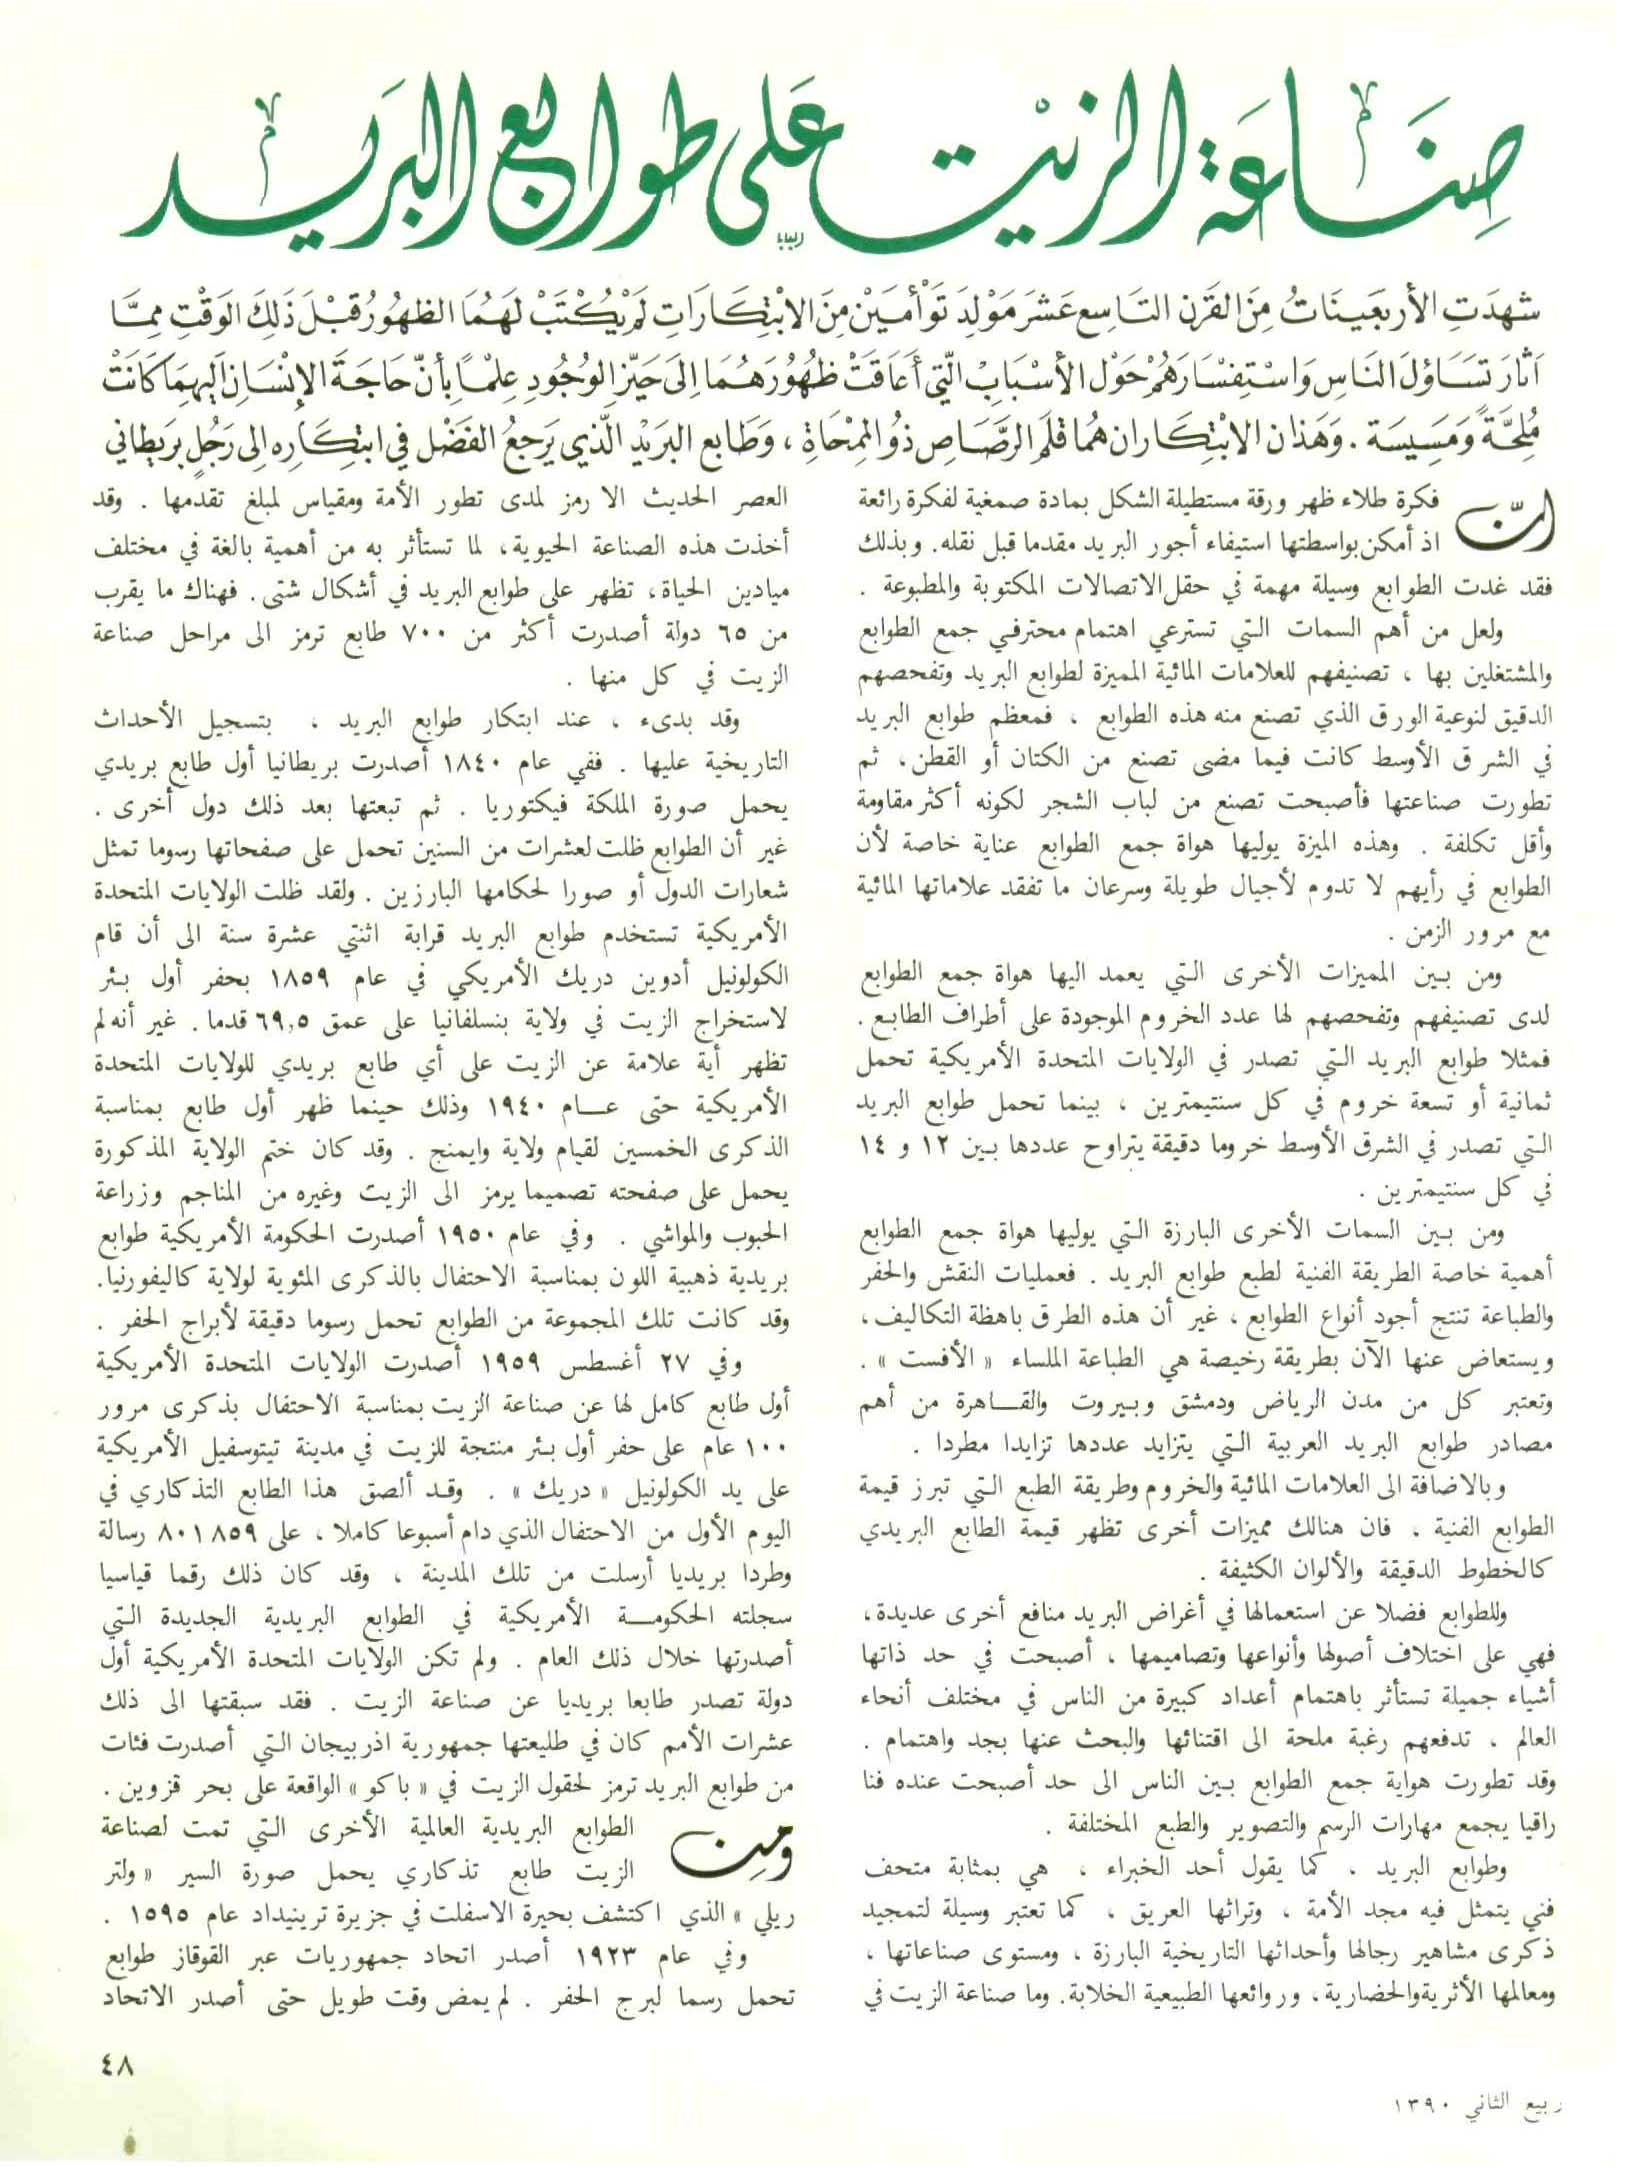 صناعة الزيت على طوابع البريد
شهدت الأربعينات من القرن التاسع عشر مولد توأمين من الابتكارات لم يكتب لهما الظهور قبل ذلك الوقت مما
أثار تساؤل الناس واستفسارهم حول الأسباب التي أعاقت ظهورهما إلى حيز الوجود علما بأن حاجة الإنسان إليهما كانت
ملحة ومسيسة . وهذان الابتكاران هما قلم الرصاص ذو الممحاة ، وطابع البريد الذي يرجع الفضل في ابتكاره إلى رجل بريطاني
ان فكرة طلاء ظهر ورقة مستطيلة الشكل بمادة صمغية لفكرة رائعة
اذ أمكن بواسطتها استيفاء أجور البريد مقدما قبل نقله. وبذلك
فقد غدت الطوابع وسيلة مهمة في حقل الاتصالات المكتوبة والمطبوعة .
ولعل من أهم السمات التي تسترعي اهتمام محترفي جمع الطوابع
والمشتغلين بها ، تصنيفهم للعلامات المائية المميزة لطوابع البريد وتفحصهم
الدقيق لنوعية الورق الذي تصنع منه هذه الطوابع ، فمعظم طوابع البريد
في الشرق الأوسط كانت فيما مضى تصنع من الكتان أو القطن، ثم
تطورت صناعتها فأصبحت تصنع من لباب الشجر لكونه أكثر مقاومة
وأقل تكلفة . وهذه الميزة يوليها هواة جمع الطوابع عناية خاصة لأن
الطوابع في رأيهم لا تدوم لأجيال طويلة وسرعان ما تفقد علاماتها المائية
مع مرور الزمن .
ومن بين المميزات الأخرى التي يعمد اليها هواة جمع الطوابع
لدى تصنيفهم وتفحصهم لها عدد الخروم الموجودة على أطراف الطابع.
فمثلا طوابع البريد التي تصدر في الولايات المتحدة الأمريكية تحمل
ثمانية أو تسعة خروم في كل سنتيمترين ، بينما تحمل طوابع البريد
التي تصدر في الشرق الأوسط خروما دقيقة يتراوح عددها بين ١٢ و ١٤
في كل سنتيمترين .
ومن بين السمات الأخرى البارزة التي يوليها هواة جمع الطوابع
أهمية خاصة الطريقة الفنية لطبع طوابع البريد . فعمليات النقش والحفر
والطباعة تنتج أجود أنواع الطوابع ، غير أن هذه الطرق باهظة التكاليف،
ويستعاض عنها الآن بطريقة رخيصة هي الطباعة الملساء « الأفست » .
وتعتبر كل من مدن الرياض ودمشق وبيروت والقاهرة من أهم
مصادر طوابع البريد العربية التي يتزايد عددها تزايدا مطردا .
وبالاضافة الى العلامات المائية والخروم وطريقة الطبع التي تبرز قيمة
الطوابع الفنية ، فان هنالك مميزات أخرى تظهر قيمة الطابع البريدي
كالخطوط الدقيقة والألوان الكثيفة .
وللطوابع فضلا عن استعمالها في أغراض البريد منافع أخرى عديدة،
فهي على اختلاف أصولها وأنواعها وتصاميمها ، أصبحت في حد ذاتها
أشياء جميلة تستأثر باهتمام أعداد كبيرة من الناس في مختلف أنحاء
العالم ، تدفعهم رغبة ملحة الى اقتنائها والبحث عنها بجد واهتمام .
وقد تطورت هواية جمع الطوابع بين الناس الى حد أصبحت عنده فنا
راقيا يجمع مهارات الرسم والتصوير والطبع المختلفة .
وطوابع البريد ، كما يقول أحد الخبراء ، هي بمثابة متحف
فني يتمثل فيه مجد الأمة ، وتراثها العريق ، كما تعتبر وسيلة لتمجيد
ذكرى مشاهير رجالها وأحداثها التاريخية البارزة ، ومستوى صناعاتها ،
ومعالمها الأثرية والحضارية، وروائعها الطبيعية الخلابة. وما صناعة الزيت في
العصر الحديث الا رمز لمدى تطور الأمة ومقياس لمبلغ تقدمها . وقد
أخذت هذه الصناعة الحيوية، لما تستأثر به من أهمية بالغة في مختلف
ميادين الحياة، تظهر على طوابع البريد في أشكال شتى. فهناك ما يقرب
من ٦٥ دولة أصدرت أكثر من ٧٠٠ طابع ترمز الى مراحل صناعة
الزيت في كل منها .
وقد بدىء ، عند ابتكار طوابع البريد ، بتسجيل الأحداث
التاريخية عليها . ففي عام ١٨٤٠ أصدرت بريطانيا أول طابع بريدي
يحمل صورة الملكة فيكتوريا . ثم تبعتها بعد ذلك دول أخرى .
غير أن الطوابع ظلت لعشرات من السنين تحمل على صفحاتها رسوما تمثل
شعارات الدول أو صورا لحكامها البارزين . ولقد ظلت الولايات المتحدة
الأمريكية تستخدم طوابع البريد قرابة اثنتي عشرة سنة الى أن قام
الكولونيل أدوين دريك الأمريكي في عام ١٨٥٩ بحفر أول بئر
لاستخراج الزيت في ولاية بنسلفانيا على عمق ٦٩,٥ قدما. غير أنه لم
تظهر أية علامة عن الزيت على أي طابع بريدي للولايات المتحدة
الأمريكية حتى عام ١٩٤٠ وذلك حينما ظهر أول طابع بمناسبة
الذكرى الخمسين لقيام ولاية وايمنج . وقد كان ختم الولاية المذكورة
يحمل على صفحته تصميما يرمز الى الزيت وغيره من المناجم وزراعة
الحبوب والمواشي . وفي عام ١٩٥٠ أصدرت الحكومة الأمريكية طوابع
بريدية ذهبية اللون بمناسبة الاحتفال بالذكرى المئوية لولاية كاليفورنيا.
وقد كانت تلك المجموعة من الطوابع تحمل رسوما دقيقة لأبراج الحفر .
وفي ٢٧ أغسطس ١٩٥٩ أصدرت الولايات المتحدة الأمريكية
أول طابع كامل لها عن صناعة الزيت بمناسبة الاحتفال بذكرى مرور
١٠٠ عام على حفر أول بئر منتجة للزيت في مدينة تيتوسفيل الأمريكية
على يد الكولونيل « دريك » . وقد ألصق هذا الطابع التذكاري في
اليوم الأول من الاحتفال الذي دام أسبوعا كاملا ، على ٨٠١٨٥٩ رسالة
وطردا بريديا أرسلت من تلك المدينة ، وقد كان ذلك رقما قياسيا
سجلته الحكومة الأمريكية في الطوابع البريدية الجديدة التي
أصدرتها خلال ذلك العام . ولم تكن الولايات المتحدة الأمريكية أول
دولة تصدر طابعا بريديا عن صناعة الزيت . فقد سبقتها الى ذلك
عشرات الأمم كان في طليعتها جمهورية اذربيجان التي أصدرت فئات
من طوابع البريد ترمز لحقول الزيت في « باكو » الواقعة على بحر قزوين .
ومن الطوابع البريدية العالمية الأخرى التي تمت لصناعة
الزيت طابع تذكاري يحمل صورة السير « ولتر
ريلي » الذي اكتشف بحيرة الاسفلت في جزيرة ترينيداد عام ١٥٩٥ .
وفي عام ١٩٢٣ أصدر اتحاد جمهوريات عبر القوقاز طوابع
تحمل رسما لبرج الحفر . لم يمض وقت طويل حتى أصدر الاتحاد
٤٨
ربيع الثاني ١٣٩٠